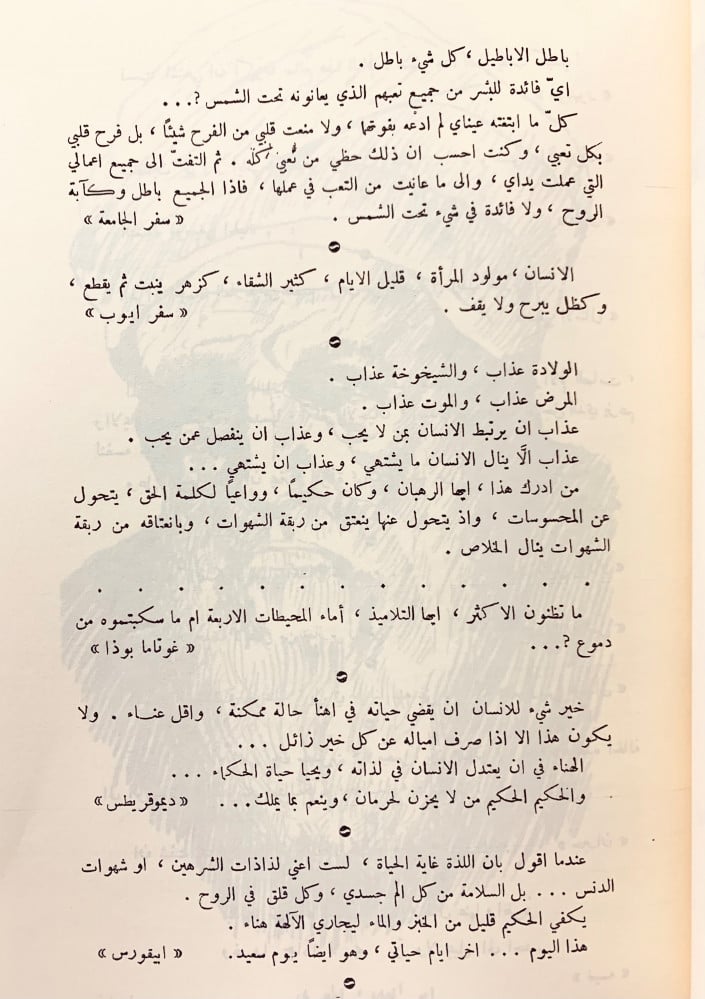 باطل الاباطيل، كل شيء باطل .
ايّ فائدة للبشر من جميع تعبهم الذي يعانونه تحت الشمس ?...
كلّ ما ابتغته عيناي لم ادعْه يفوتها، ولا منعت قلبي من الفرح شيئاً، بل فرح قلبي
بكل تعبي، وكنت احسب ان ذلك حظي من تعبي كله . ثم التفتّ الى جميع اعمالي
التي عملت يداي، والى ما عانيت من التعب في عملها، فاذا الجميع باطل وكآبة
الروح، ولا فائدة في شيء تحت الشمس . « سفر الجامعة »
الانسان، مولود المرأة، قليل الايام، كثير الشقاء، كزهر ينبت ثم يقطع،
وكظل يبرح ولا يقف . « سفر ايوب »
الولادة عذاب، والشيخوخة عذاب .
المرض عذاب، والموت عذاب .
عذاب ان يرتبط الانسان بمن لا يحب، وعذاب ان ينفصل عمن يحب .
عذاب الَّا ينال الانسان ما يشتهي، وعذاب ان يشتهي ...
من ادرك هذا، ايها الرهبان، وكان حكيماً، وواعياً لكلمة الحق، يتحول
عن المحسوسات، واذ يتحول عنها ينعتق من ربقة الشهوات، وبانعتاقه من ربقة
الشهوات ينال الخلاص .
. . . . . . . . . . . . .
ما تظنون الاكثر، ايها التلاميذ، أماء المحيطات الاربعة ام ما سكبتموه من
دموع ?... « غوتاما بوذا »
خير شيء للانسان ان يقضي حياته في اهنأ حالة ممكنة، واقل عناء . ولا
يكون هذا الا اذا صرف امياله عن كل خير زائل ...
الهناء في ان يعتدل الانسان في لذاته، ويحيا حياة الحكماء ...
والحكيم الحكيم من لا يحزن لحرمان، وينعم بما يملك... « ديموقريطس »
عندما اقول بان اللذة غاية الحياة، لست اعني لذاذات الشرهين، او شهوات
الدنس ... بل السلامة من كل الم جسدي، وكل قلق في الروح .
يكفي الحكيم قليل من الخبز والماء ليجاري الآلهة هناء .
هذا اليوم ... اخر ايام حياتي، وهو ايضاً يوم سعيد. « ابيقورس »